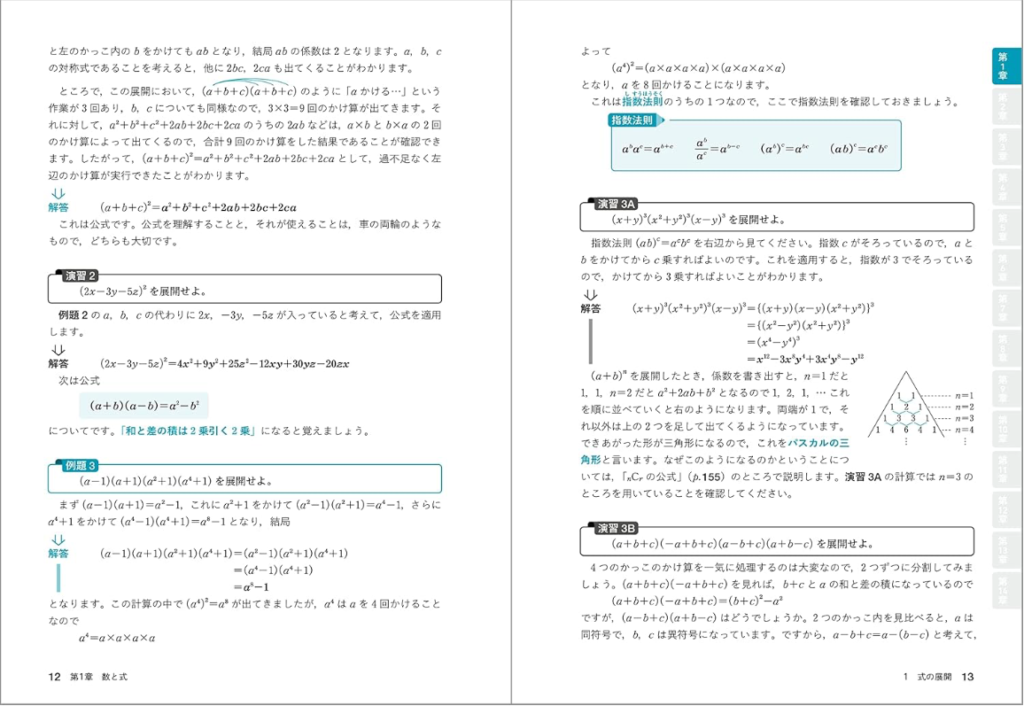 と左のかっこ内のbをかけてもabとなり，結局abの係数は2となります。a，b，c
の対称式であることを考えると，他に2bc，2caも出てくることがわかります。
ところで，この展開において，(a+b+c)(a+b+c)のように「aかける…」という
作業が3回あり，b，cについても同様なので，3×3=9回のかけ算が出てきます。そ
れに対して，a²+b²+c²+2ab+2bc+2caのうちの2abなどは，a×bとb×aの2回
のかけ算によって出てくるので，合計9回のかけ算をした結果であることが確認でき
ます。したがって，(a+b+c)²=a²+b²+c²+2ab+2bc+2caとして，過不足なく左
辺のかけ算が実行できたことがわかります。
解答 (a+b+c)²=a²+b²+c²+2ab+2bc+2ca
これは公式です。公式を理解することと，それが使えることは，車の両輪のような
もので，どちらも大切です。
演習2
(2x−3y−5z)²を展開せよ。
例題2のa，b，cの代わりに2x，−3y，−5zが入っていると考えて，公式を適用
します。
解答 (2x−3y−5z)²=4x²+9y²+25z²−12xy+30yz−20zx
次は公式
(a+b)(a−b)=a²−b²
についてです。「和と差の積は2乗引く2乗」になると覚えましょう。
例題3
(a−1)(a+1)(a²+1)(a⁴+1)を展開せよ。
まず(a−1)(a+1)=a²−1，これにa²+1をかけて(a²−1)(a²+1)=a⁴−1，さらに
a⁴+1をかけて(a⁴−1)(a⁴+1)=a⁸−1となり，結局
解答 (a−1)(a+1)(a²+1)(a⁴+1)=(a²−1)(a²+1)(a⁴+1)
=(a⁴−1)(a⁴+1)
=a⁸−1
となります。この計算の中で(a⁴)²=a⁸が出てきましたが，a⁴はaを4回かけること
なので
a⁴=a×a×a×a
12 第1章 数と式
よって
(a⁴)²=(a×a×a×a)×(a×a×a×a)
となり，aを8回かけることになります。
しすうほうそく
これは指数法則のうちの1つなので，ここで指数法則を確認しておきましょう。
指数法則
aᵇaᶜ=aᵇ⁺ᶜ aᵇ/aᶜ=aᵇ⁻ᶜ (aᵇ)ᶜ=aᵇᶜ (ab)ᶜ=aᶜbᶜ
演習3A
(x+y)³(x²+y²)³(x−y)³を展開せよ。
指数法則(ab)ᶜ=aᶜbᶜを右辺から見てください。指数cがそろっているので，aと
bをかけてからc乗すればよいのです。これを適用すると，指数が3でそろっている
ので，かけてから3乗すればよいことがわかります。
解答 (x+y)³(x²+y²)³(x−y)³={(x+y)(x−y)(x²+y²)}³
={(x²−y²)(x²+y²)}³
=(x⁴−y⁴)³
=x¹²−3x⁸y⁴+3x⁴y⁸−y¹²
(a+b)ⁿを展開したとき，係数を書き出すと，n=1だと
1，1，n=2だとa²+2ab+b²となるので1，2，1，…これ
を順に並べていくと右のようになります。両端が1で，そ
れ以外は上の2つを足して出てくるようになっています。
できあがった形が三角形になるので，これをパスカルの三
角形と言います。なぜこのようになるのかということにつ
いては，「ₙCᵣの公式」(p.155)のところで説明します。演習3Aの計算ではn=3の
ところを用いていることを確認してください。
1 1 n=1
1 2 1 n=2
1 3 3 1 n=3
1 4 6 4 1 n=4
演習3B
(a+b+c)(−a+b+c)(a−b+c)(a+b−c)を展開せよ。
4つのかっこのかけ算を一気に処理するのは大変なので，2つずつに分割してみま
しょう。(a+b+c)(−a+b+c)を見れば，b+cとaの和と差の積になっているので
(a+b+c)(−a+b+c)=(b+c)²−a²
ですが，(a−b+c)(a+b−c)はどうでしょうか。2つのかっこ内を見比べると，aは
同符号で，b，cは異符号になっています。ですから，a−b+c=a−(b−c)と考えて，
1 式の展開 13
第1章
第2章
第3章
第4章
第5章
第6章
第7章
第8章
第9章
第10章
第11章
第12章
第13章
第14章